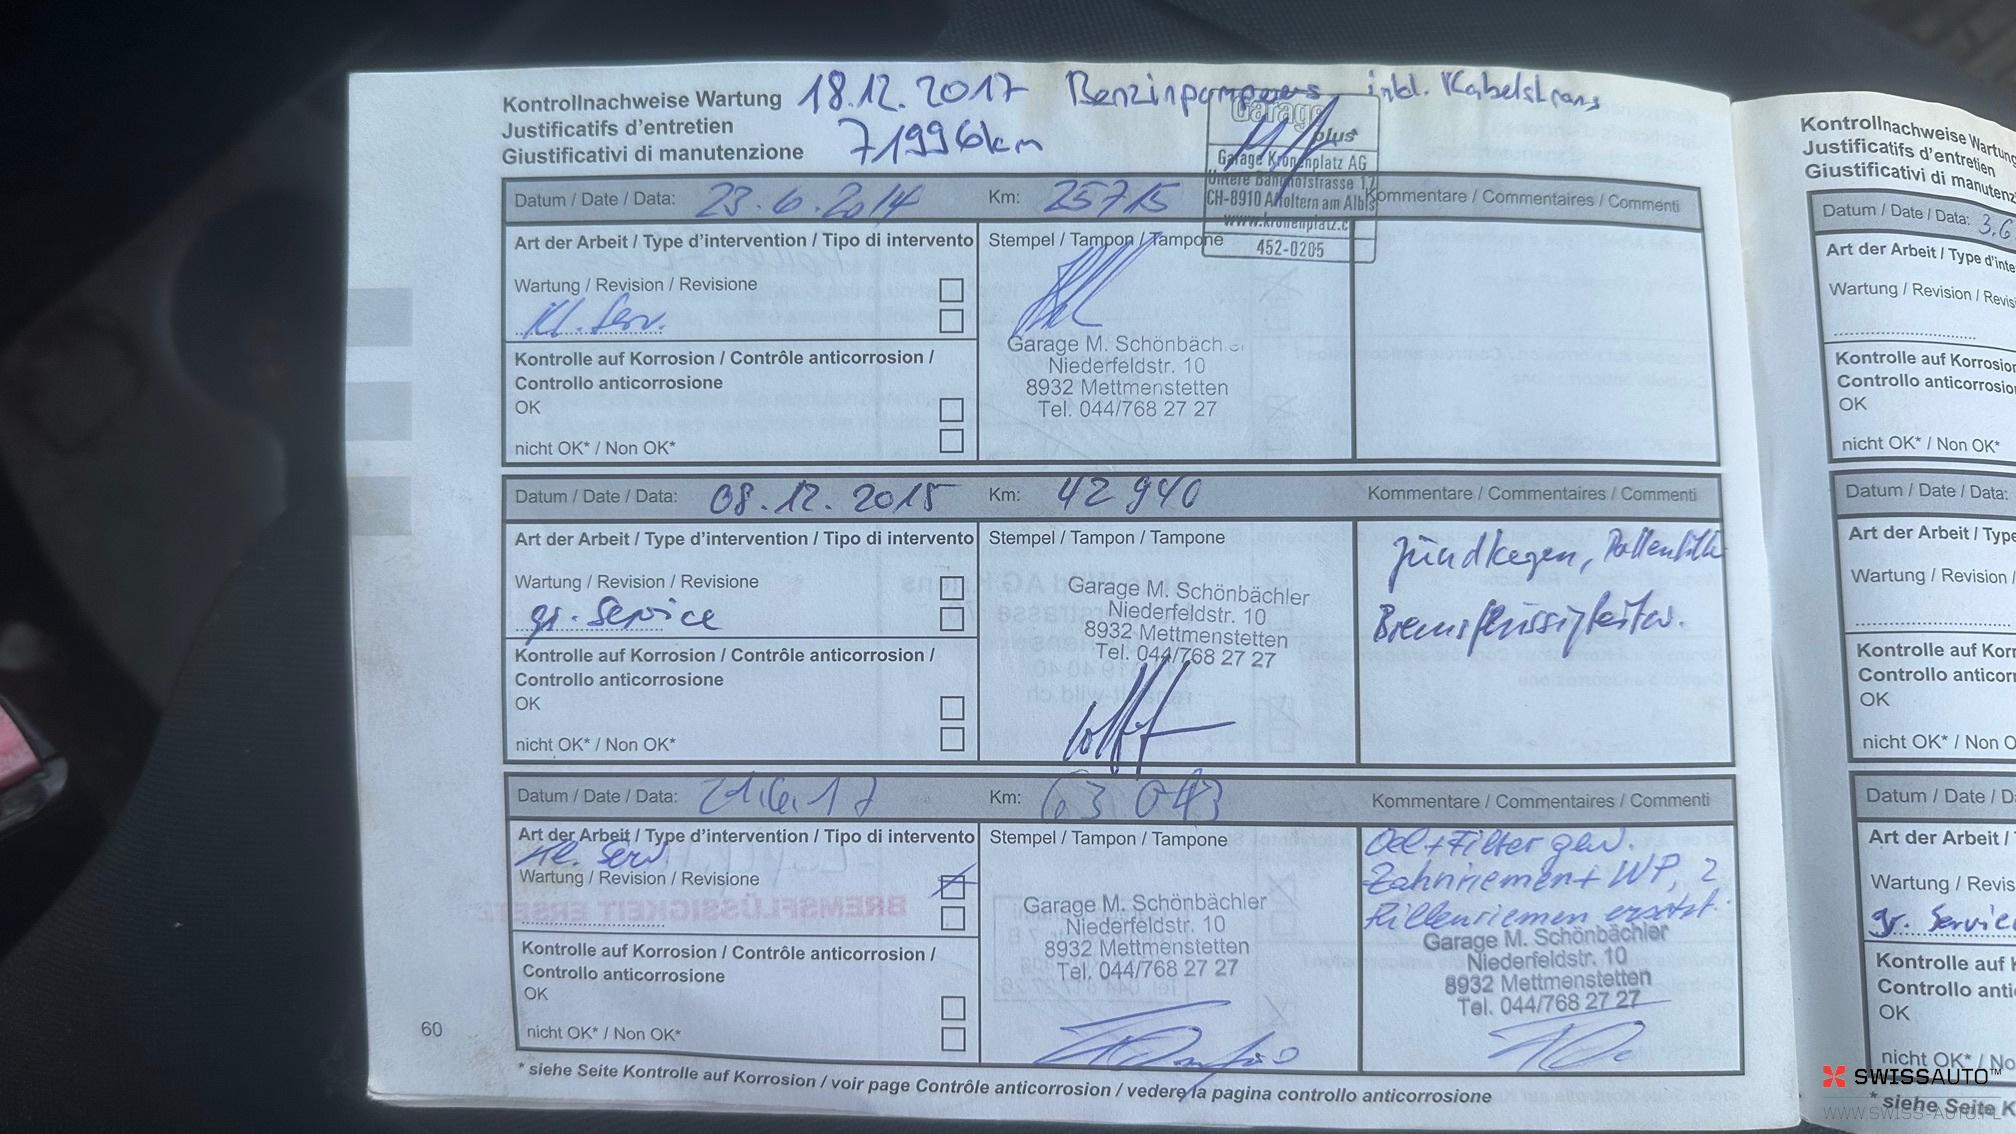 Kontrollnachweise Wartung 18.12.2017 Benzinpumpe inkl. Kabelstrang
Justificatifs d'entretien
Giustificativi di manutenzione 71996km
Garage
plus
Garage Kronenplatz AG
Untere Bahnhofstrasse 17
CH-8910 Affoltern am Albis
www.kronenplatz.c
452-0205
Datum / Date / Data: 23.6.2014 Km: 25715 Kommentare / Commentaires / Commenti
Art der Arbeit / Type d'intervention / Tipo di intervento Stempel / Tampon / Tampone
Wartung / Revision / Revisione
kl. Serv.
Garage M. Schönbächler
Niederfeldstr. 10
8932 Mettmenstetten
Tel. 044/768 27 27
Kontrolle auf Korrosion / Contrôle anticorrosion /
Controllo anticorrosione
OK
nicht OK* / Non OK*
Datum / Date / Data: 08.12.2015 Km: 42940 Kommentare / Commentaires / Commenti
Art der Arbeit / Type d'intervention / Tipo di intervento Stempel / Tampon / Tampone
Wartung / Revision / Revisione
gr. Service
Garage M. Schönbächler
Niederfeldstr. 10
8932 Mettmenstetten
Tel. 044/768 27 27
Zündkerzen, Pollenfilter
Bremsflüssigkeit
Kontrolle auf Korrosion / Contrôle anticorrosion /
Controllo anticorrosione
OK
nicht OK* / Non OK*
Datum / Date / Data: 21.6.17 Km: 63 043 Kommentare / Commentaires / Commenti
Art der Arbeit / Type d'intervention / Tipo di intervento Stempel / Tampon / Tampone
kl. Serv
Wartung / Revision / Revisione
Garage M. Schönbächler
Niederfeldstr. 10
8932 Mettmenstetten
Tel. 044/768 27 27
Oel+Filter gew.
Zahnriemen+ WP, 2
Rillenriemen ersetzt.
Garage M. Schönbächler
Niederfeldstr. 10
8932 Mettmenstetten
Tel. 044/768 27 27
Kontrolle auf Korrosion / Contrôle anticorrosion /
Controllo anticorrosione
OK
nicht OK* / Non OK*
60
* siehe Seite Kontrolle auf Korrosion / voir page Contrôle anticorrosion / vedere la pagina controllo anticorrosione
Kontrollnachweise Wartung
Justificatifs d'entretien
Giustificativi di manutenz
Datum / Date / Data: 3.6
Art der Arbeit / Type d'inte
Wartung / Revision / Revisi
Kontrolle auf Korrosio
Controllo anticorrosio
OK
nicht OK* / Non OK*
Datum / Date / Data:
Art der Arbeit / Type
Wartung / Revision /
Kontrolle auf Korr
Controllo anticorr
OK
nicht OK* / Non O
Datum / Date / D
Art der Arbeit /
Wartung / Revis
gr. Service
Kontrolle auf K
Controllo anti
OK
nicht OK* / No
* siehe Seite K
SWISSAUTO™
WWW.SWISS-AUTO.PL